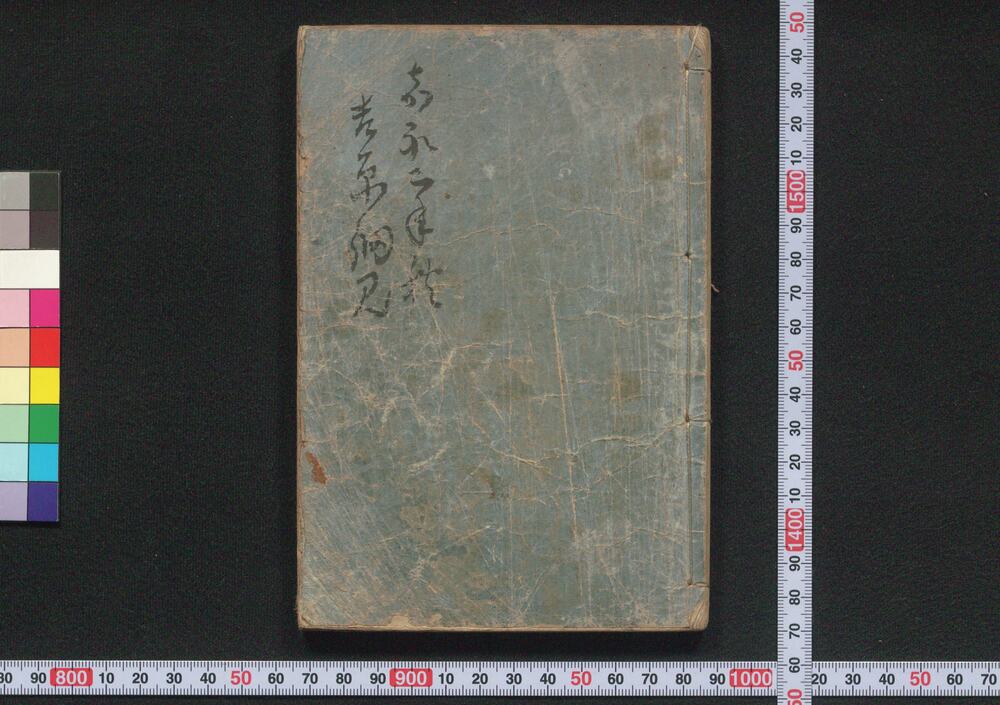 嘉永三年秋
吉原細見
50
40
30
20
10
1500
90
80
70
60
50
40
30
20
10
1400
90
80
70
60
50
80 90 800 10 20 30 40 50 60 70 80 90 900 10 20 30 40 50 60 70 80 90 1000 20 30 40 50 60 70